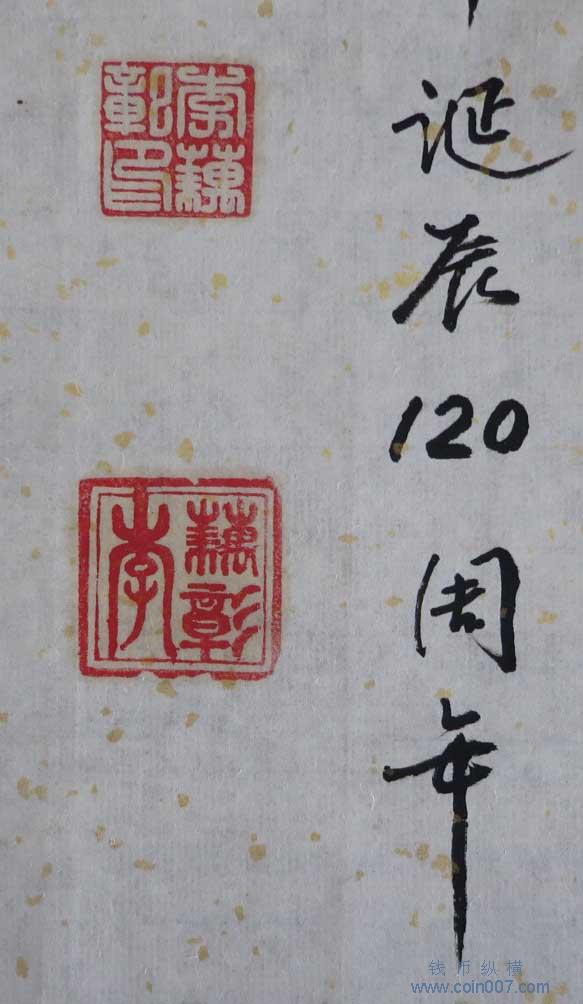 诞辰120周年
李彰印
彰李
钱币纵横
www.coin007.com